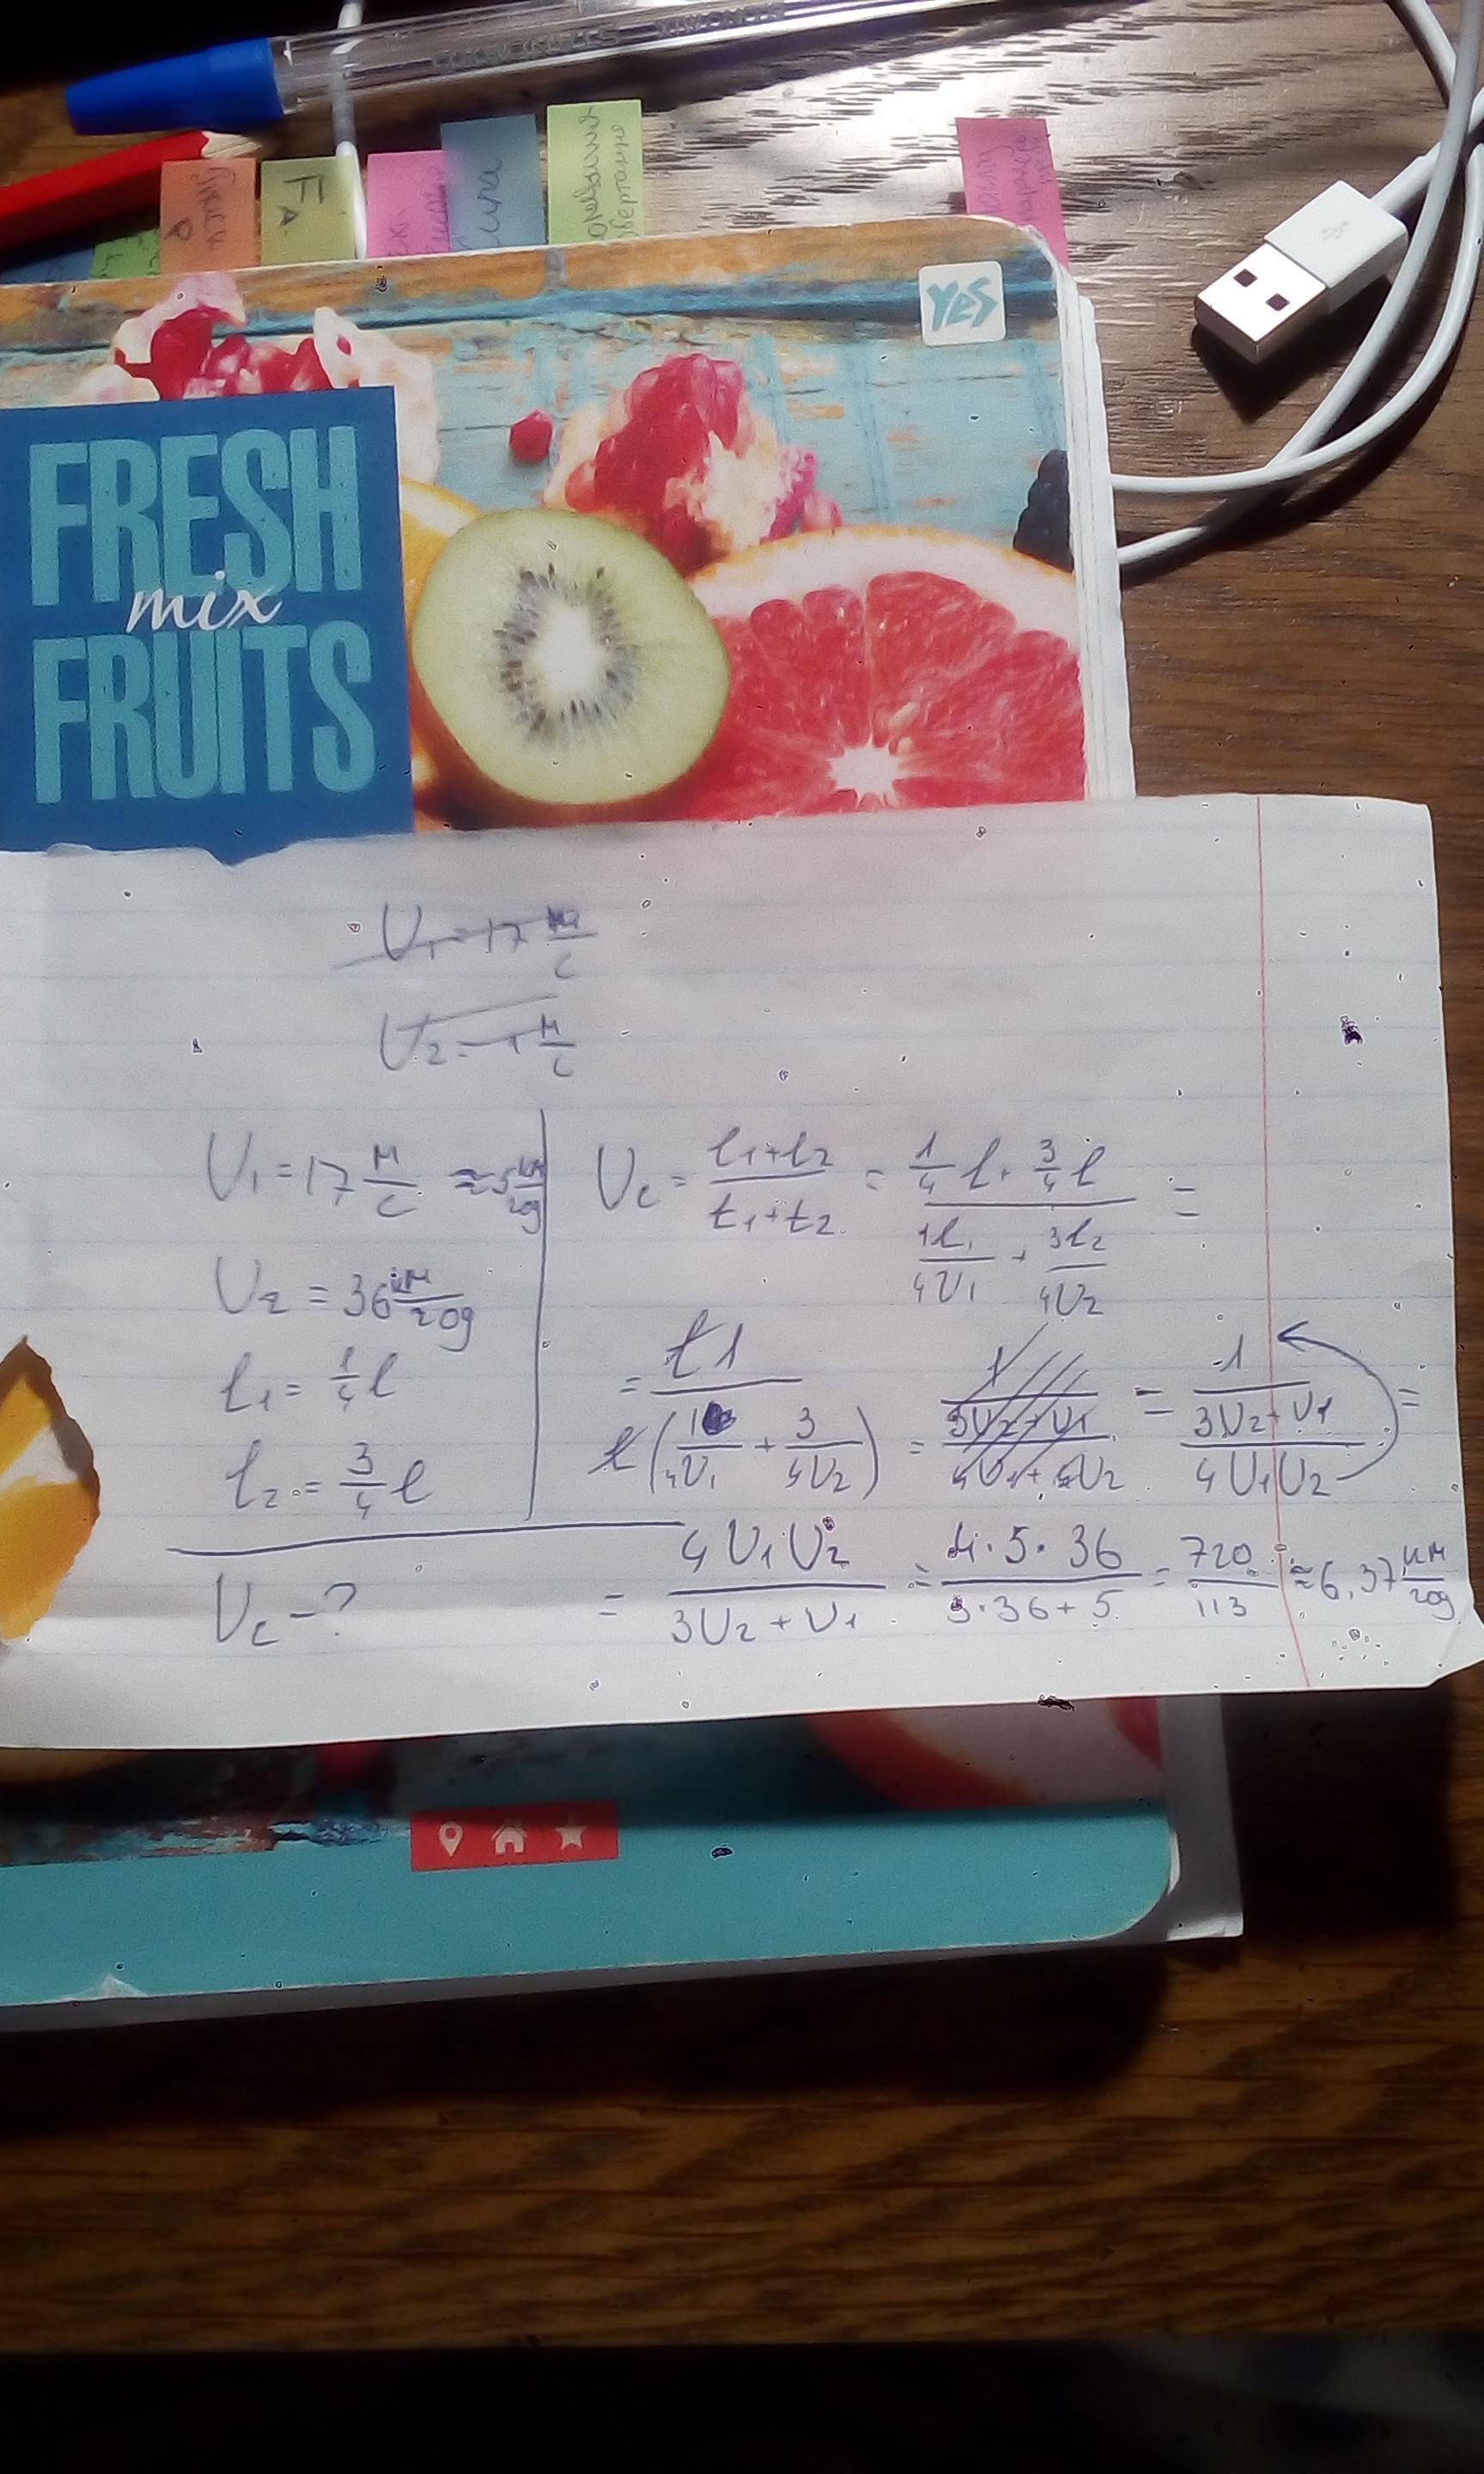 F_A
YES
FRESH
mix
FRUITS
U₁=17 м/с
U₂=1 м/с
U₁=17 м/с ≈5 км/год
U₂=36 км/год
l₁=1/4 l
l₂=3/4 l
Uc-?
Uc=(l₁+l₂)/(t₁+t₂)=(1/4 l+3/4 l)/(1l₁/4U₁+3l₂/4U₂)=
=l1/(l(1/4U₁+3/4U₂))=1/((3U₂+U₁)/(4U₁+4U₂))=1/((3U₂+U₁)/(4U₁U₂))=
=4U₁U₂/(3U₂+U₁)=4·5·36/(3·36+5)=720/113≈6,37 км/год